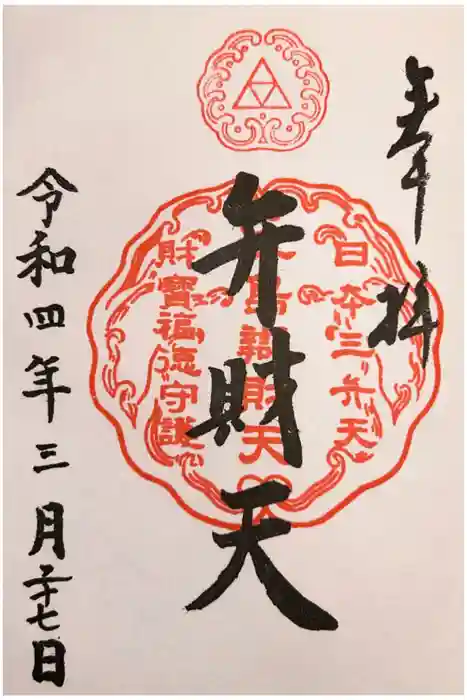 奉拝
日本三弁天
弁財天
財寶福徳守護
令和四年三月二十七日